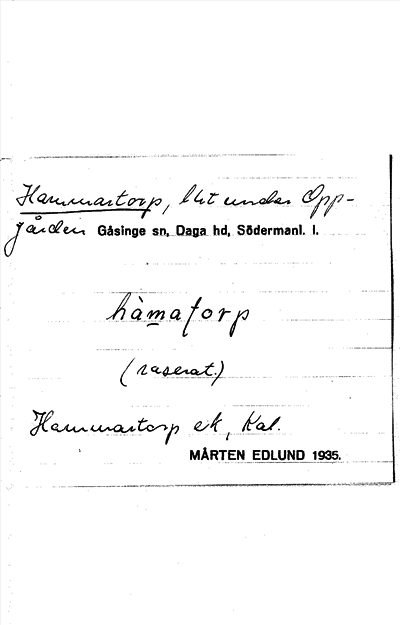 Hammartorp, lht under Opp-
gården Gåsinge sn, Daga hd, Södermanl. l.
hàmatorp
(raserat.)
Hammartorp ek, Kal.
MÅRTEN EDLUND 1935.